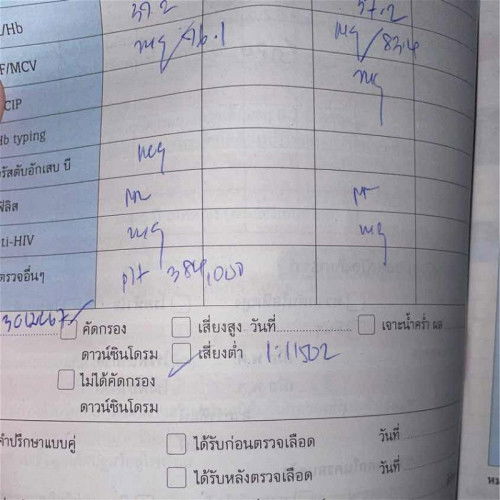 37.2 37.2
/Hb
neg/76.1 neg/83.4
F/MCV
neg
CIP
Hb typing
neg
รัสตับอักเสบ บี
NR NR
ฟิลิส
neg neg
ti-HIV
plt 384,000
ตรวจอื่นๆ
คัดกรอง เสี่ยงสูง วันที่ เจาะน้ำคร่ำ ผล
ดาวน์ซินโดรม เสี่ยงต่ำ 1:11502
ไม่ได้คัดกรอง
ดาวน์ซินโดรม
คำปรึกษาแบบคู่ ได้รับก่อนตรวจเลือด วันที่
ได้รับหลังตรวจเลือด วันที่